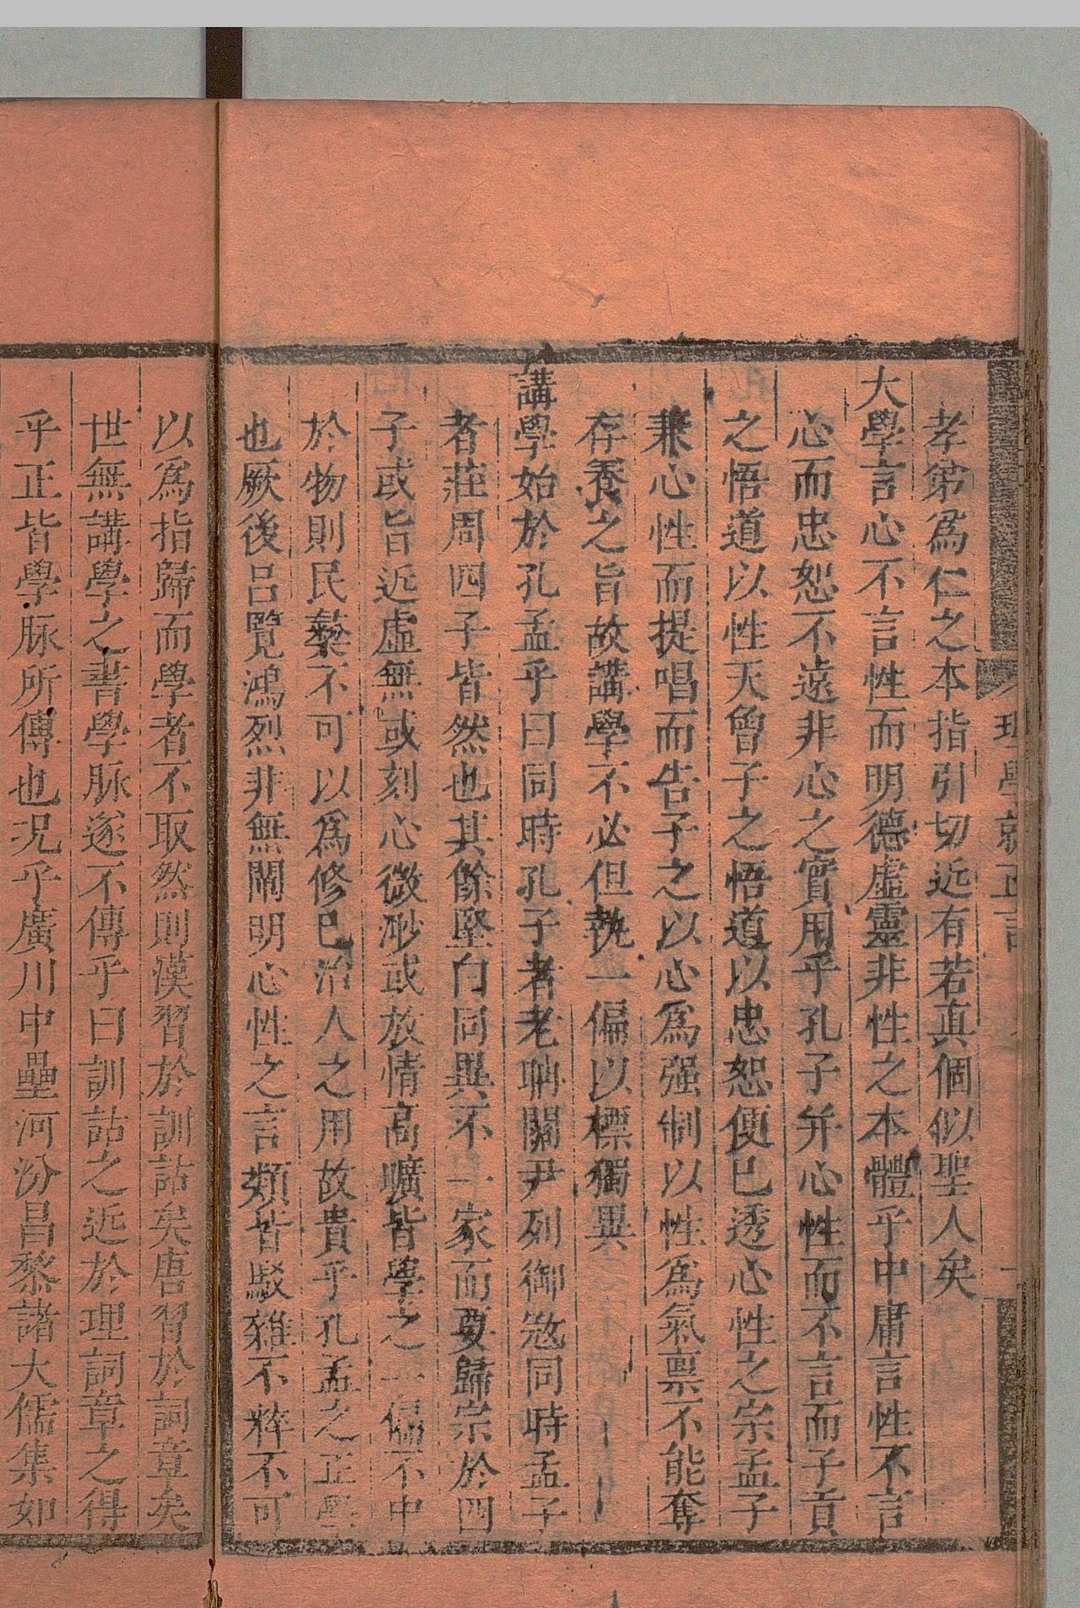 理學就正言
孝弟爲仁之本指引切近有若真個似聖人矣
大學言心不言性而明德虛靈非性之本體乎中庸言性不言
心而忠恕不遠非心之實用乎孔子并心性而不言而子貢
之悟道以性天曾子之悟道以忠恕便已透心性之宗孟子
兼心性而提唱而告子之以心爲强制以性爲氣禀不能奪
存養之旨故講學不必但執一偏以標獨異
講學始於孔孟乎曰同時孔子者老聃關尹列御㓂同時孟子
者莊周四子皆然也其餘堅白同異不一家而要歸宗於四
子或旨近虛無或刻心微渺或放情高曠皆學之一偏不中
於物則民彝不可以爲修已治人之用故貴乎孔孟之正學
也厥後呂覽鴻烈非無闡明心性之言類皆駁雜不粹不可
以爲指歸而學者不取然則漢習於訓詁矣唐習於詞章矣
世無講學之書學脉遂不傳乎曰訓詁之近於理詞章之得
乎正皆學脉所傳也况乎廣川中壘河汾昌黎諸大儒集如